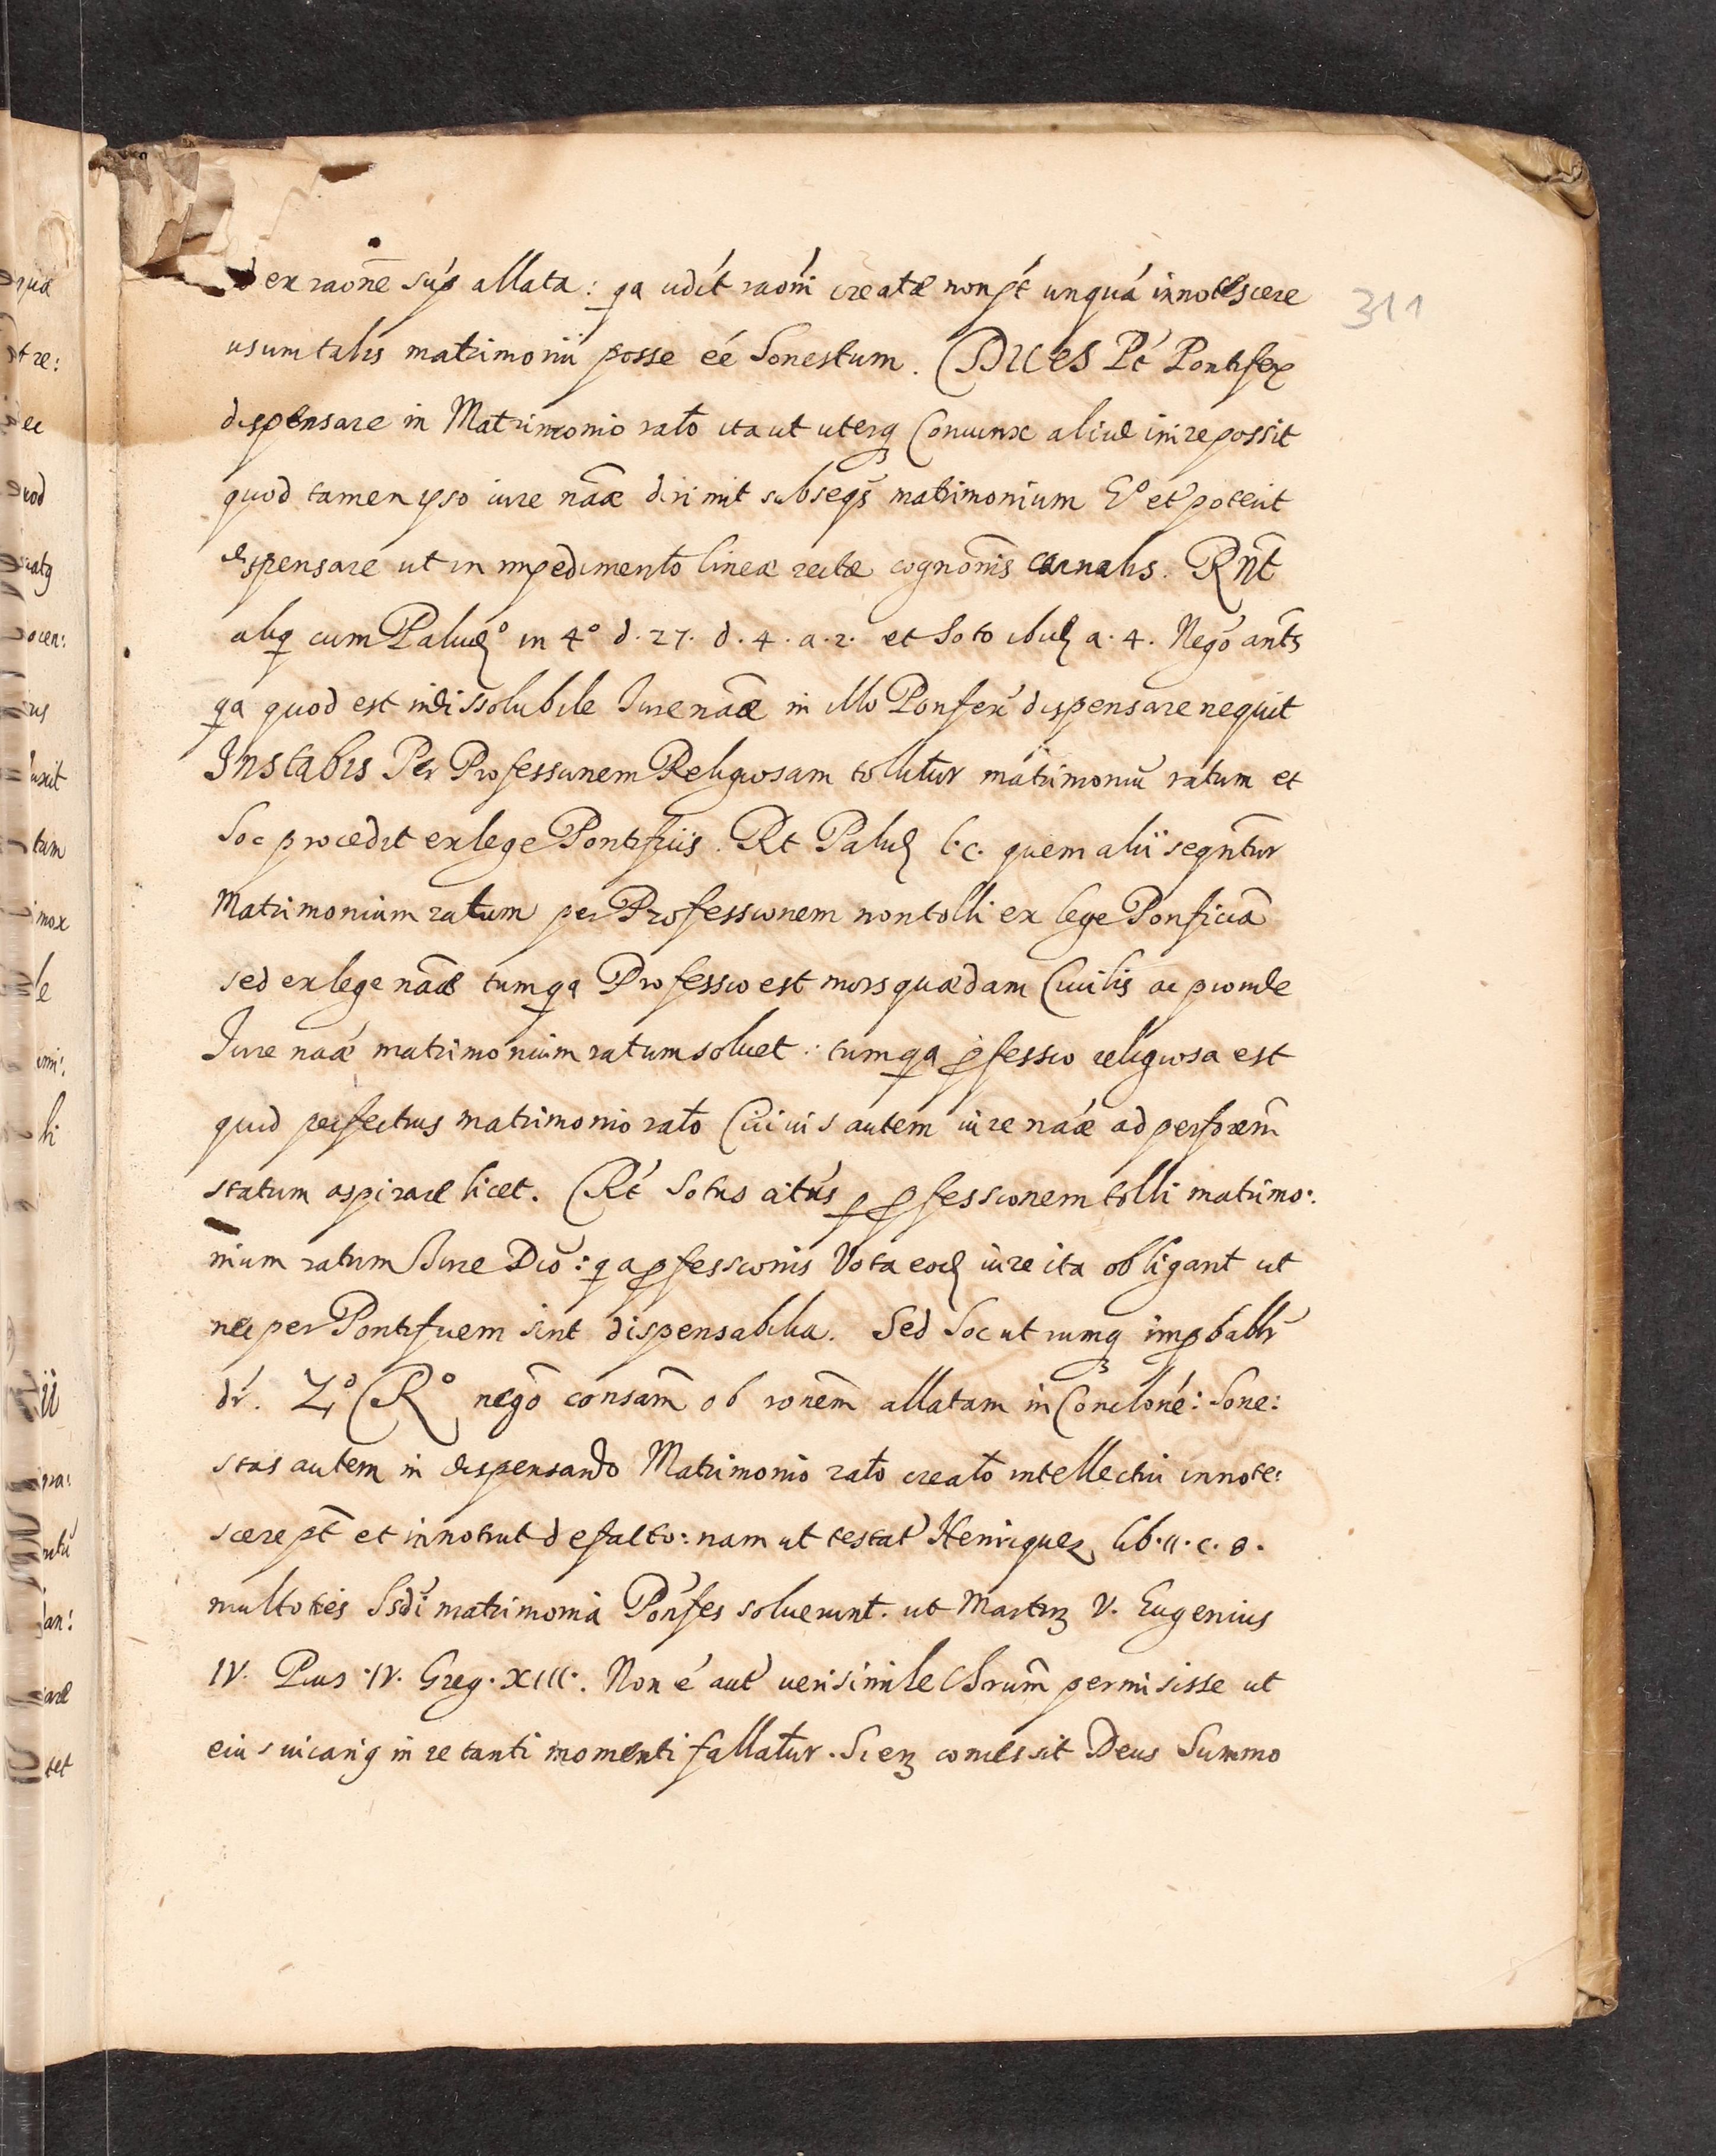 ex raoñe sup̄ allata: qa udét raoni creatæ non pt́ unquá innotescere
311
usum talis matrimonii posse eé honestum. DICES Pt́ Pontifex
dispensare in Matrimonio rato ita ut uterq Coniunx aliud inire possit
quod tamen ipso iure naæ dirimit subseqs matrimonium Eº et poterit
dispensare ut in impedimento lineæ rectæ cognoñis carnalis. Rñt
aliq cum Paludº in 4º d. 27. d. 4. a. 2. et Soto ibid a. 4. Negó añts
qa quod est indissolubile Iure naæ in illo Ponfex dispensare nequit
INSTABIS Per Professionem Religiosam tollitur matrimoniũ ratum et
hoc procedit ex lege Pontificis. Rt Palud l. c. quem alii sequñtur
Matrimonium ratum per Professionem non tolli ex lege Ponficia
sed ex lege naæ tum qa Professio est mors quædam Ciuilis ac proinde
Iure naæ matrimonium ratum soluet: tum qa pfessio religiosa est
quid perfectius matrimonio rato Cuiuis autem iure naæ ad perforem̃
statum aspirare licet. Rt́ Sotus citús p pfessionem tolli matrimo:
nium ratum Iure Diõ: qa pfessionis Vota eod iure ita obligant ut
nec per Pontificem sint dispensabilia. Sed hoc utrumq impbabtr
dr̃. 2º Rº nego consam̃ ob ronem̃ allatam in Conclone: hone:
stas autem in dispensando Matrimonio rato creato intellectui innote:
scere pt̃ et innotuit de facto: nam ut testat̃ Henriquez lib. 11. c. 8.
multoties hsdi matrimonia Ponfes soluerunt. ut Martinꝫ V. Eugenius
IV. Pius IV. Greg. XIII. Non é aut̃ uerisimile Chrum̃ permisisse ut
eius uicariꝫ in re tanti momenti fallatur. Sicꝫ concessit Deus Summo